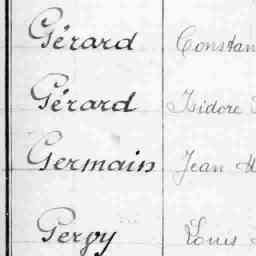 Gérard Constan
Gérard Isidore
Germain Jean M
Gergy Louis